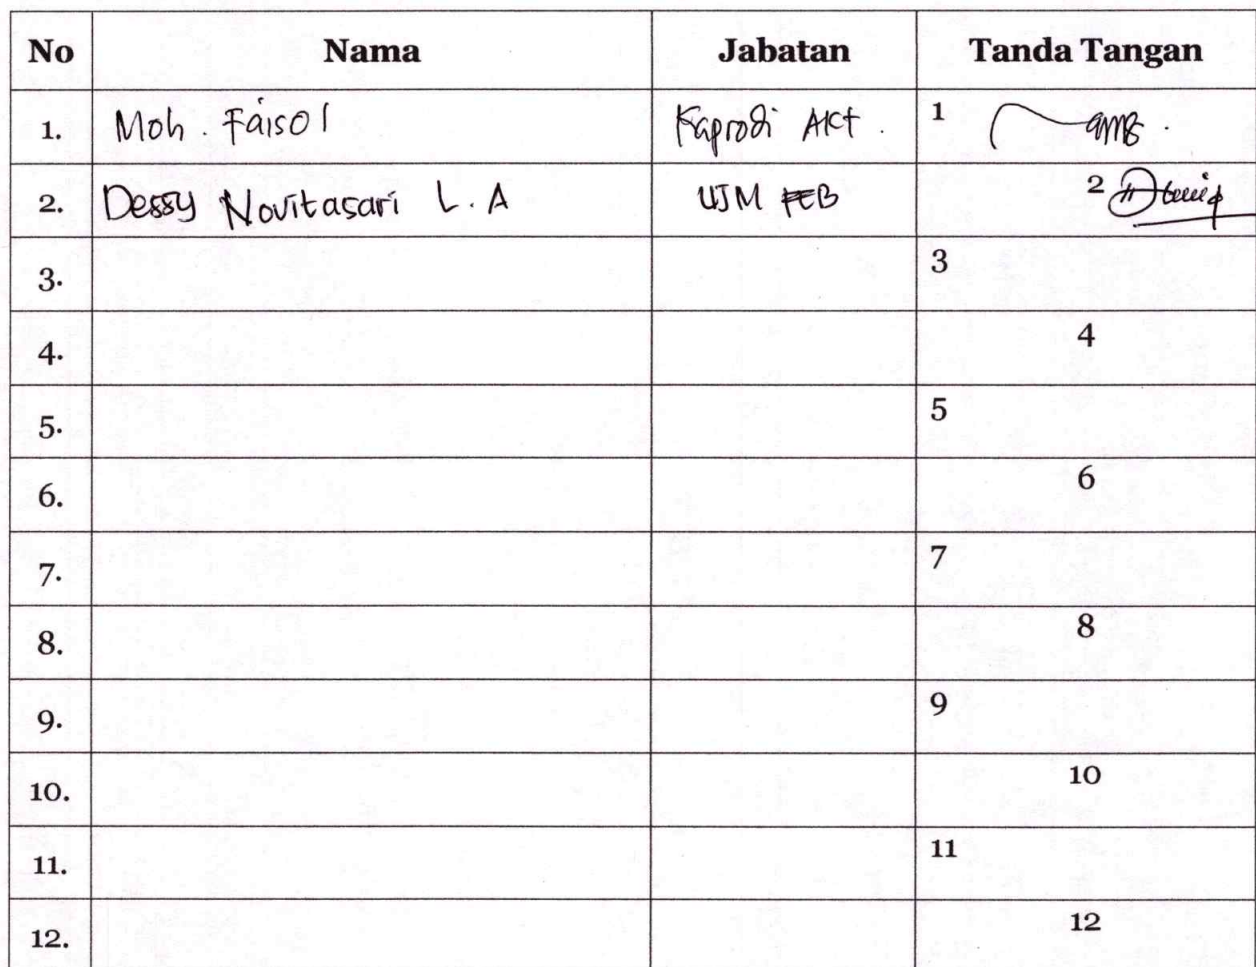 No Nama Jabatan Tanda Tangan
1. Moh. Faisol Kaprodi AKt. 1
2. Dessy Novitasari L.A UJM FEB 2
3. 3
4. 4
5. 5
6. 6
7. 7
8. 8
9. 9
10. 10
11. 11
12. 12